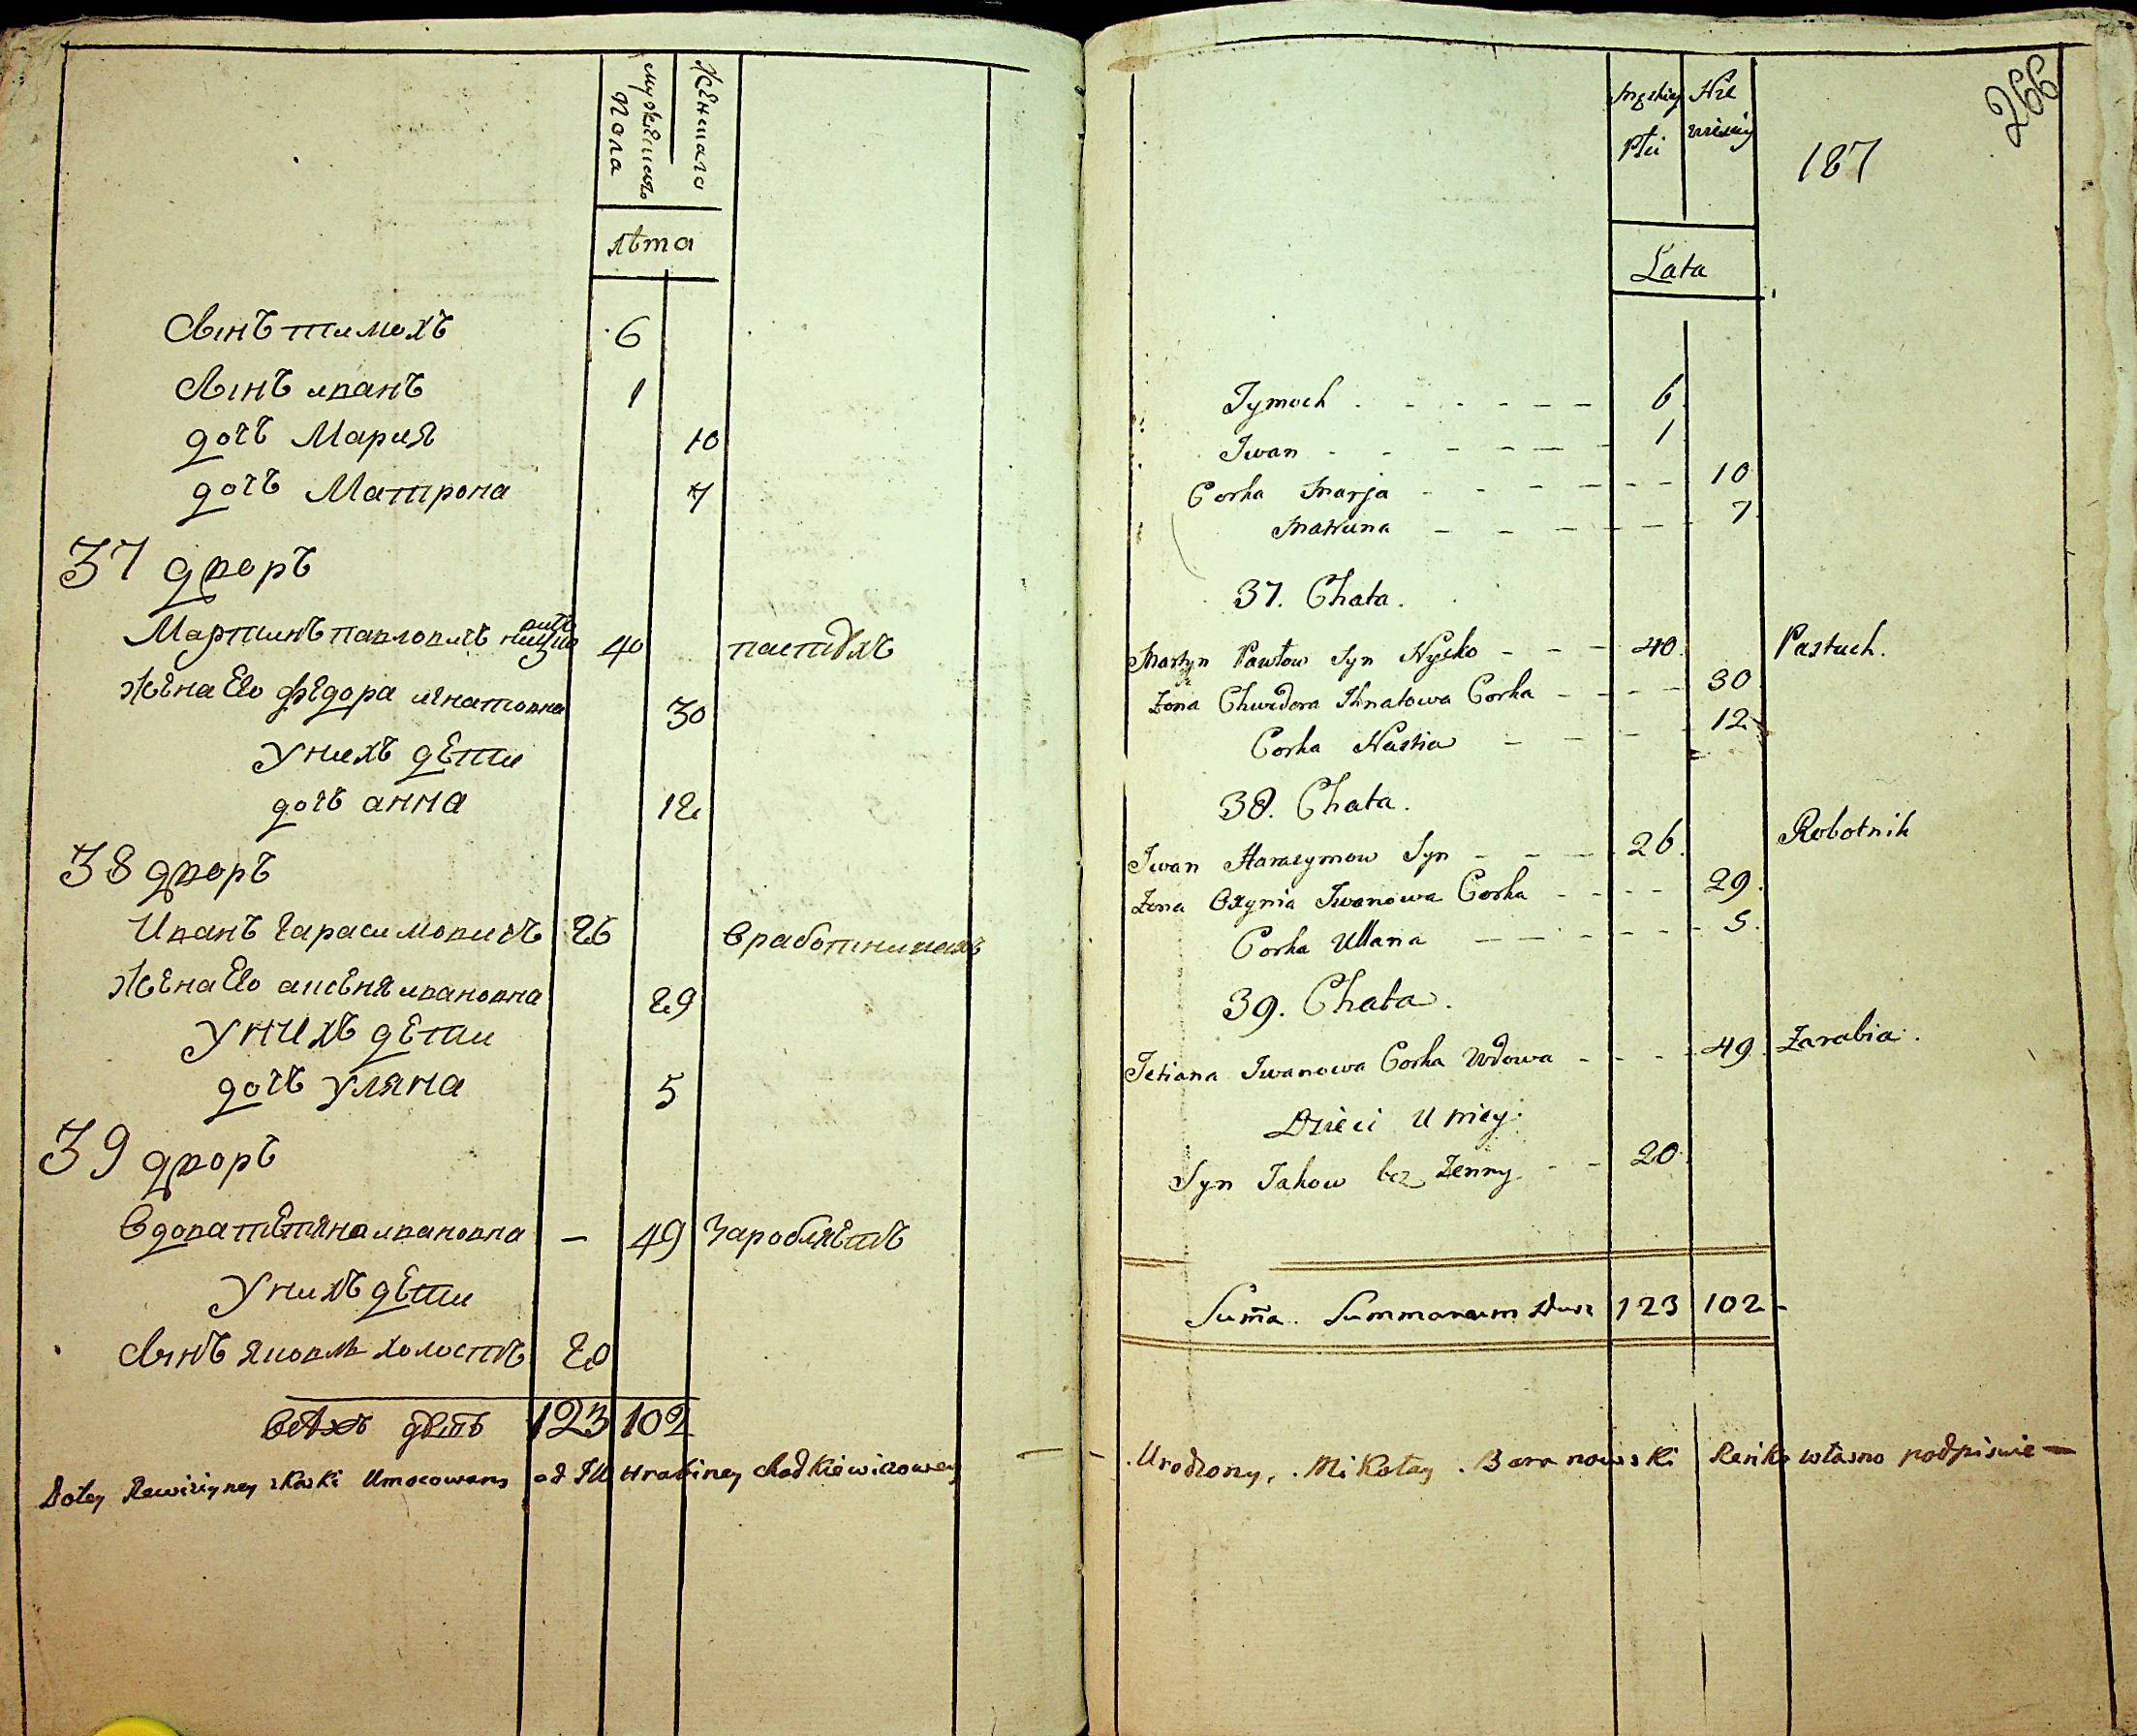 мужескаго Пола
женскаго
лѣта
Сынъ тимохъ 6
Сынъ иванъ 1
дочъ Мария 10
дочъ Матрона 7
37 дворъ
Мартинъ павловичъ 40 пастухъ
жена Его федора игнатовна 30
У нихъ дети
дочъ анна 12
38 дворъ
Иванъ гарасимовичъ 26 в работникахъ
жена Его аксеня ивановна 29
У нихъ дети
дочъ уляна 5
39 дворъ
Вдова тетяна ивановна — 49 Заробляетъ
У нихъ дети
Сынъ яковъ холостъ 20
всѣхъ душъ 123 102
Do tey Rewizyiney skaski Umocowany od JW Hrabiney Chodkiewiczowey
266
187
Męskiey Płci
Nie wieściey
Lata
Tymoch 6
Iwan 1
Corka Marja 10
Matruna 7
37. Chata.
Martyn Pawłow Syn Nyćko 40. Pastuch.
Zona Chwedora Ihnatowa Corka 30
Corka Nastia 12
38. Chata.
Iwan Harasymow Syn 26. Robotnik
Zona Oxynia Iwanowa Corka 29.
Corka Ullana 5.
39. Chata.
Tetiana Iwanowa Corka Wdowa 49. Zarabia.
Dzieci u niey.
Syn Jakow bez Zenny 20.
Suma Summarum Dusz 123 102
Urodzony, Mikołay Baranowski Ręnko własno podpisuie —